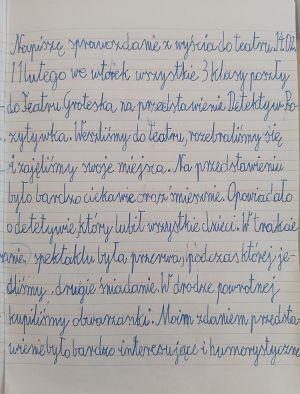 Napiszę sprawozdanie z wyjścia do teatru. 14.02.
11 lutego we wtorek wszystkie 3 klasy poszły
do Teatru Groteska na przedstawienie Detektyw Po-
zytywka. Weszliśmy do teatru, rozebraliśmy się
i zajęliśmy swoje miejsca. Na przedstawieniu
było bardzo ciekawie oraz śmiesznie. Opowiadało
o detetywie, który lubił wszystkie dzieci. W trakcie
spektaklu była przerwa, podczas której je-
dliśmy, drugie śniadanie. W drodze powrotnej
kupiliśmy obwarzanki. Moim zdaniem przedsta-
wienie było bardzo interesujące i humorystyczne